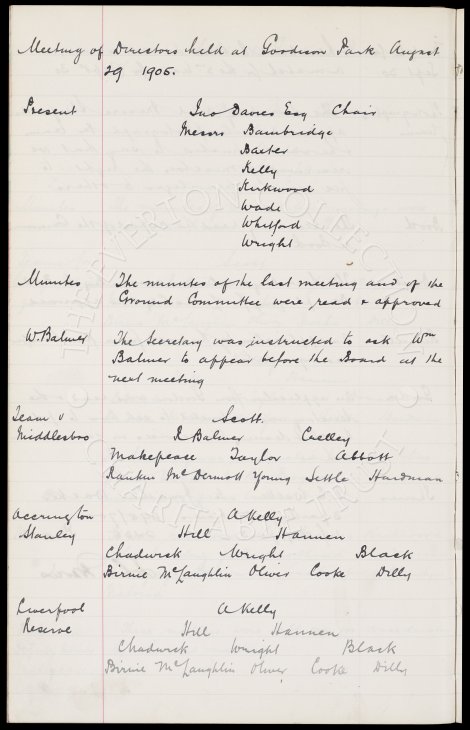 Meeting of Directors held at Goodison Park August
29 1905.
Present Jno Davies Esq Chair
Messrs Bainbridge
Baxter
Kelly
Kirkwood
Wade
Whitford
Wright
Minutes The minutes of the last meeting and of the
Ground Committee were read & approved
W. Balmer The Secretary was instructed to ask Wm
Balmer to appear before the Board at the
next meeting
Team v Scott.
Middlesbro R Balmer Crelley
Makepeace Taylor Abbott
Rankin McDermott Young Settle Hardman
Accrington A Kelly
Stanley Hill Hannen
Chadwick Wright Black
Birnie McLaughlin Oliver Cooke Dilly
Liverpool A Kelly
Reserve Hill Hannen
Chadwick Wright Black
Birnie McLaughlin Oliver Cooke Dilly
THE EVERTON COLLECTION